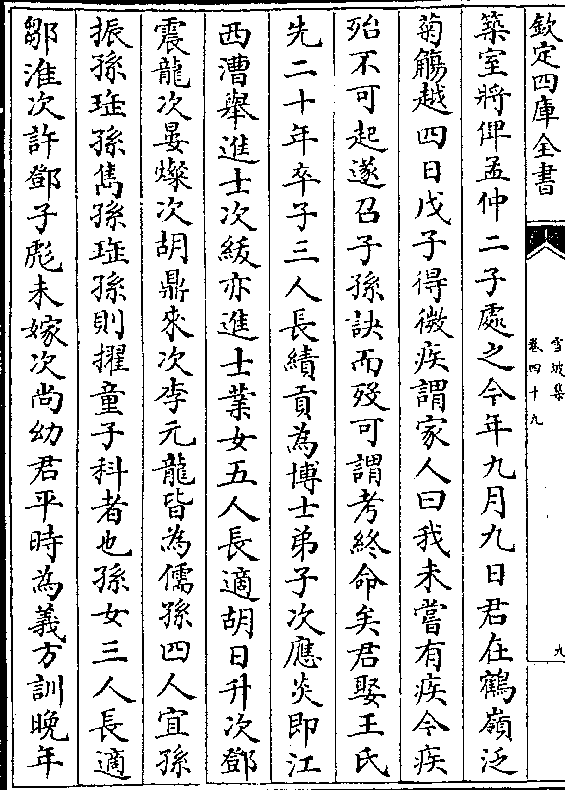 欽定四庫全書
雪坡集
卷四十九
九
築室將俾孟仲二子處之今年九月九日君在鶴嶺泛
菊觴越四日戊子得微疾謂家人曰我未嘗有疾今疾
殆不可起遂召子孫訣而歿可謂考終命矣君娶王氏
先二十年卒子三人長績貢為博士弟子次應炎即江
西漕舉進士次紱亦進士業女五人長適胡日升次鄧
震龍次晏燦次胡鼎來次李元龍皆為儒孫四人宜孫
振孫琺孫雋孫琺孫則擢童子科者也孫女三人長適
鄒淮次許鄧子彪未嫁次尚幼君平時為義方訓晚年